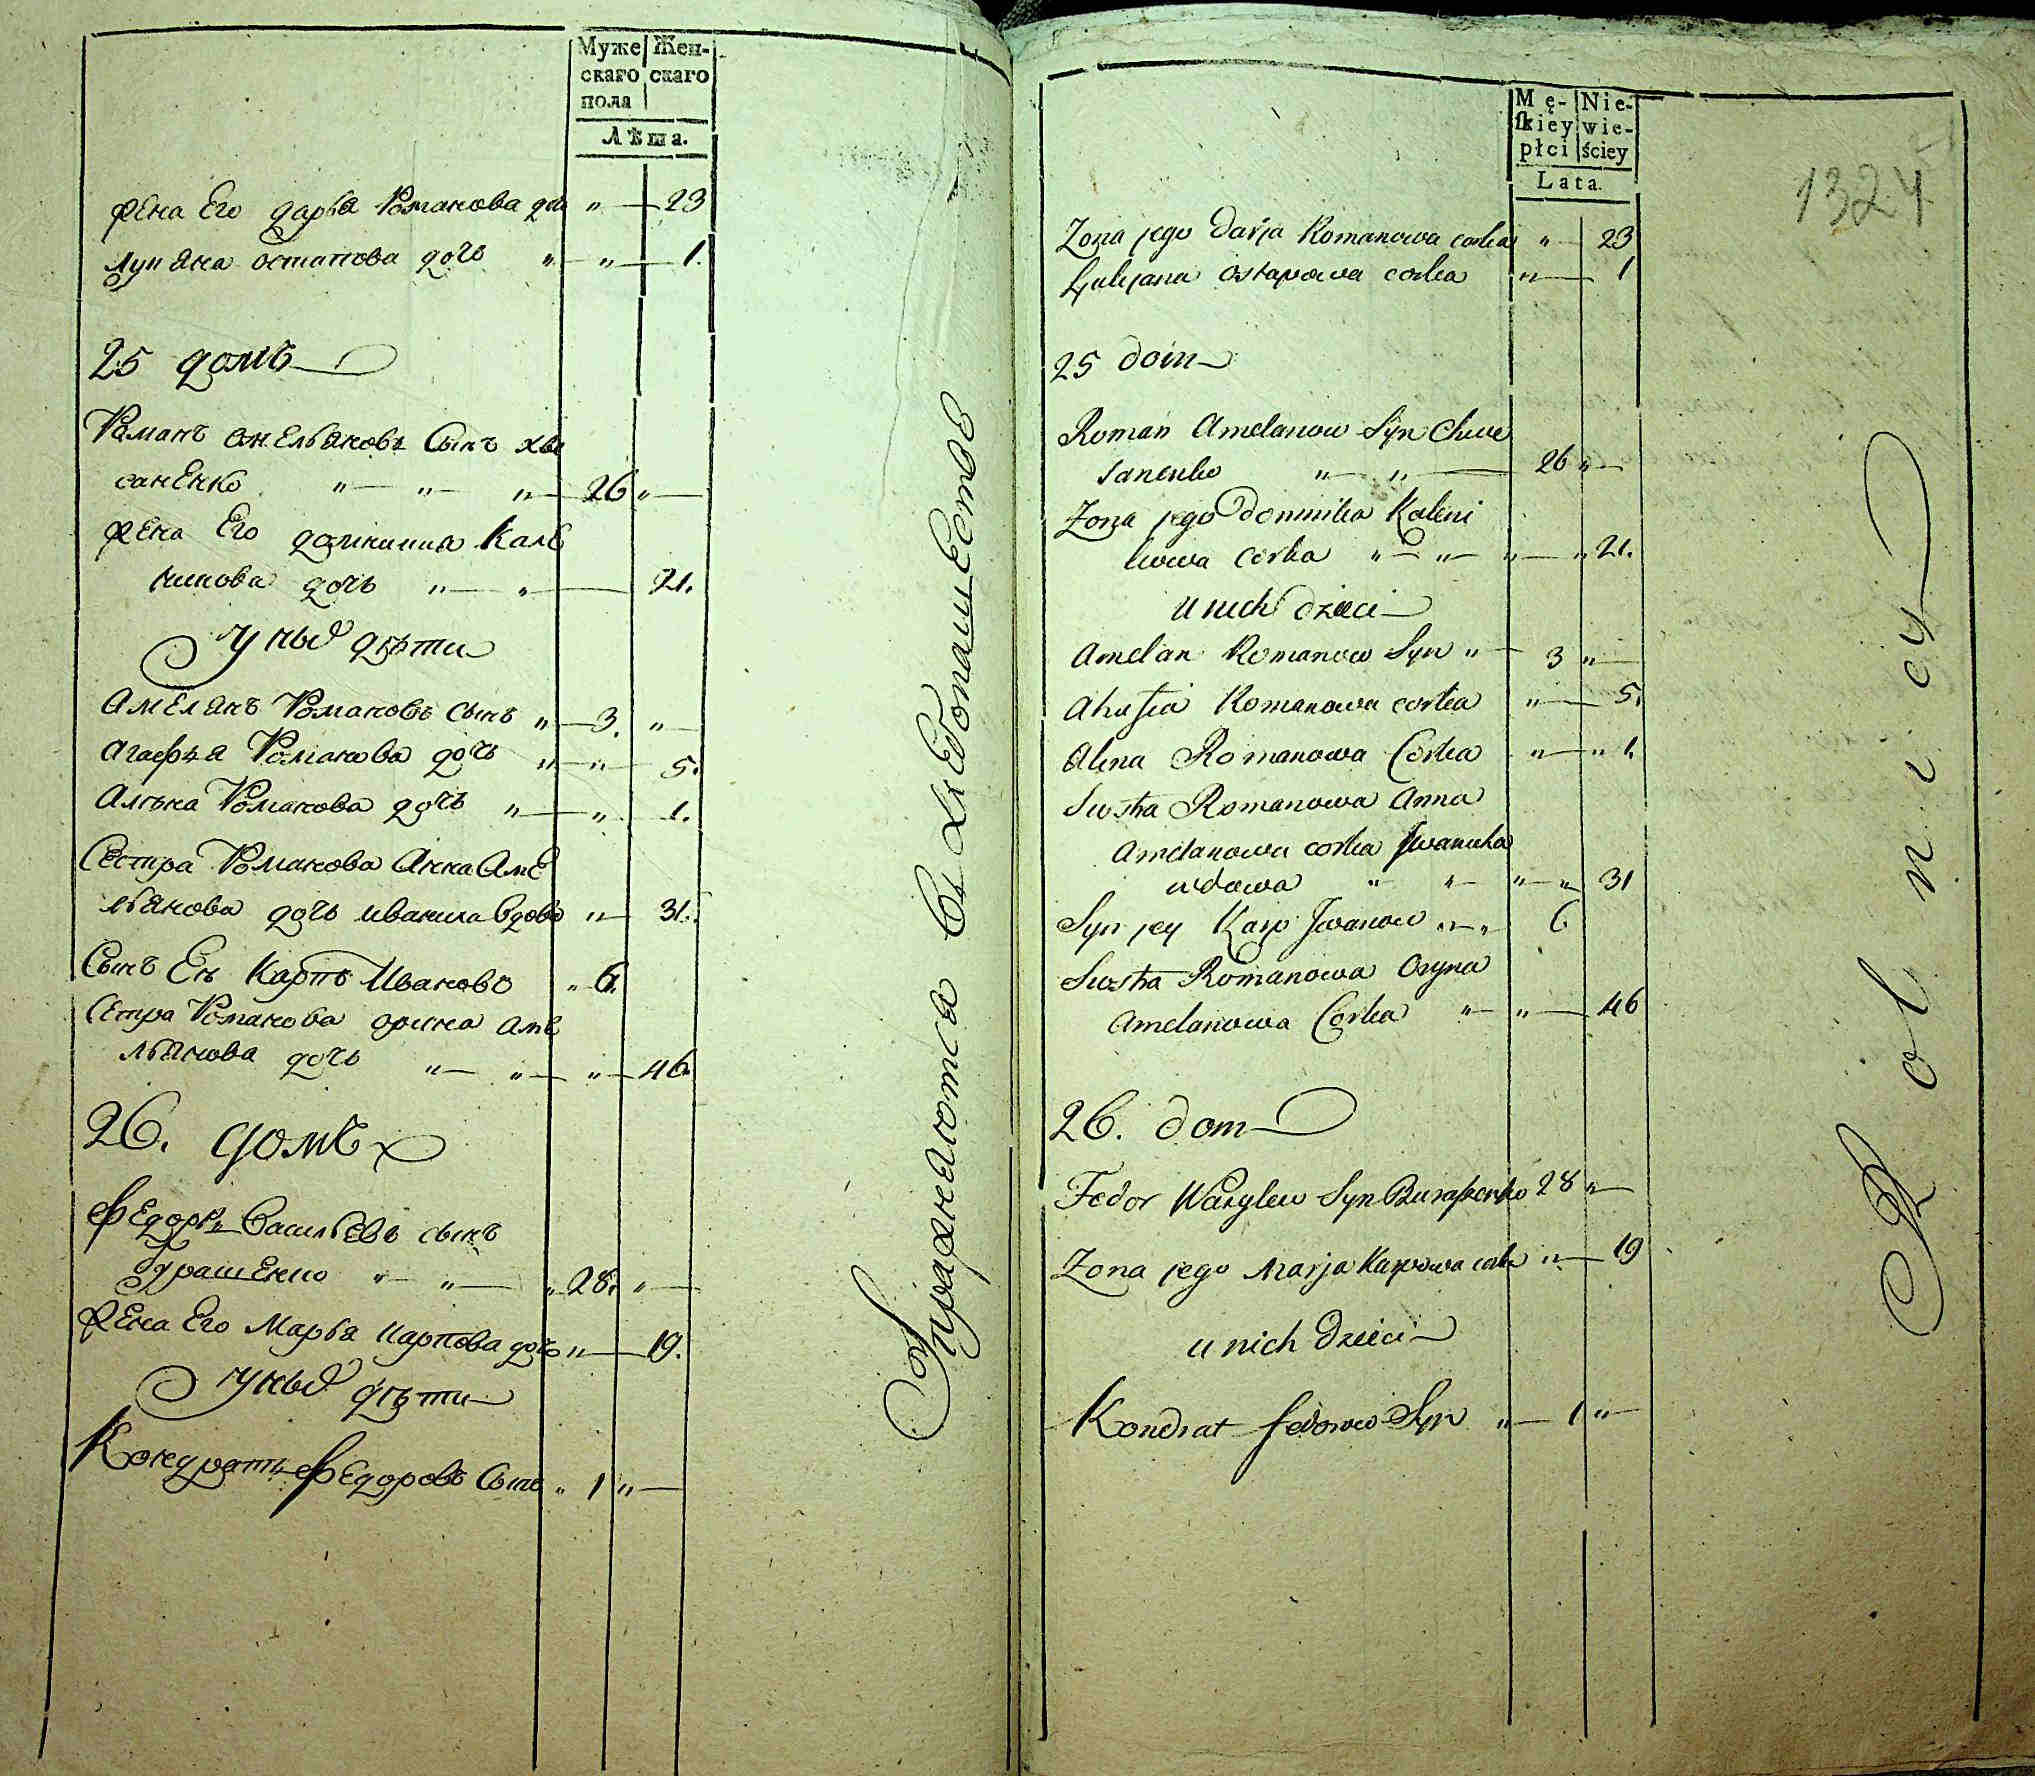 Муже Жен-
скаго скаго
пола
Лѣта.
жена Его дарья Романова дочь " 23
остапова дочь " " 1.
25 домъ
Романъ омельяновъ Сынъ хве
саненко " " " 26 "
жена Его домникия Кале
никова дочь " " 21.
у ныхъ дѣти
Амелянъ Романовъ сынъ " 3. "
агафья Романова дочь " " 5.
Алѣна Романова дочь " " 1.
Сестра Романова Анна Аме
льянова дочь иваниха вдова " 31.
Сынъ Еѣ Карпъ Ивановъ " 6.
Сестра Романова орина аме
льянова дочь " " " 46.
26. домъ
Федоръ Васильевъ сынъ
" " " 28. "
жена Его Марья карпова дочь " 19.
у ныхъ дѣти
Кондратъ Федоровъ Сынъ " 1 "
Упражняются въ хлебопашестве
Mę- Nie-
ſkiey wie-
płci ściey
Lata.
1324
Zona jego Darja Romanowa corka " 23
Ostapowa corka " 1
25 dom
Roman Amelanow Syn Chwe
sanenko " " 26 "
Zona jego Domnika Kaleni
kowa corka " " " " 21.
u nich dzieci
Amelan Romanow Syn " 3 "
Ahafia Romanowa corka " 5.
Alena Romanowa Corka " " 1.
Siostra Romanowa Anna
Amelanowa corka Iwanicha
wdowa " " " " 31
Syn jey Karp Iwanow " " 6
Siostra Romanowa Oryna
Amelanowa Corka " " 46
26. dom
Fedor Wasylew Syn 28 "
Zona jego Marja Karpowa corka " 19
u nich dzieci
Kondrat fedorow Syn " 1 "
Rolnicy